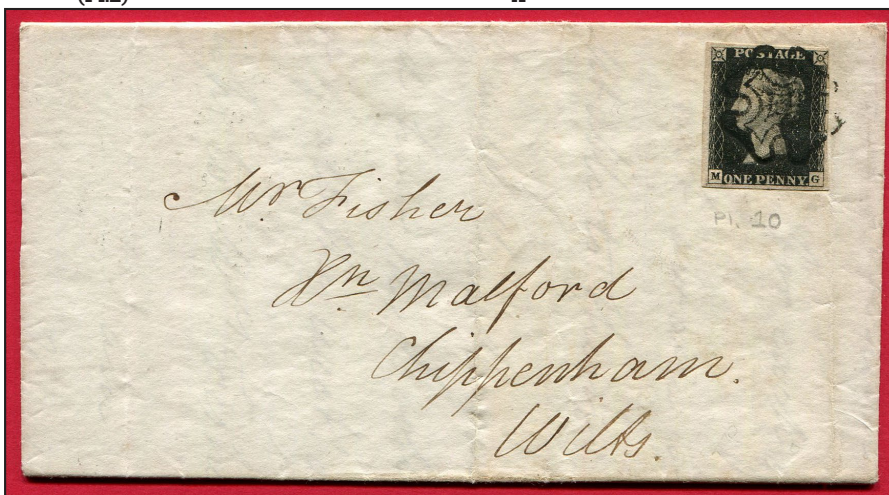 POSTAGE
M ONE PENNY. G
Pl. 10
Mr Fisher
Xn Malford
Chippenham.
Wilts.